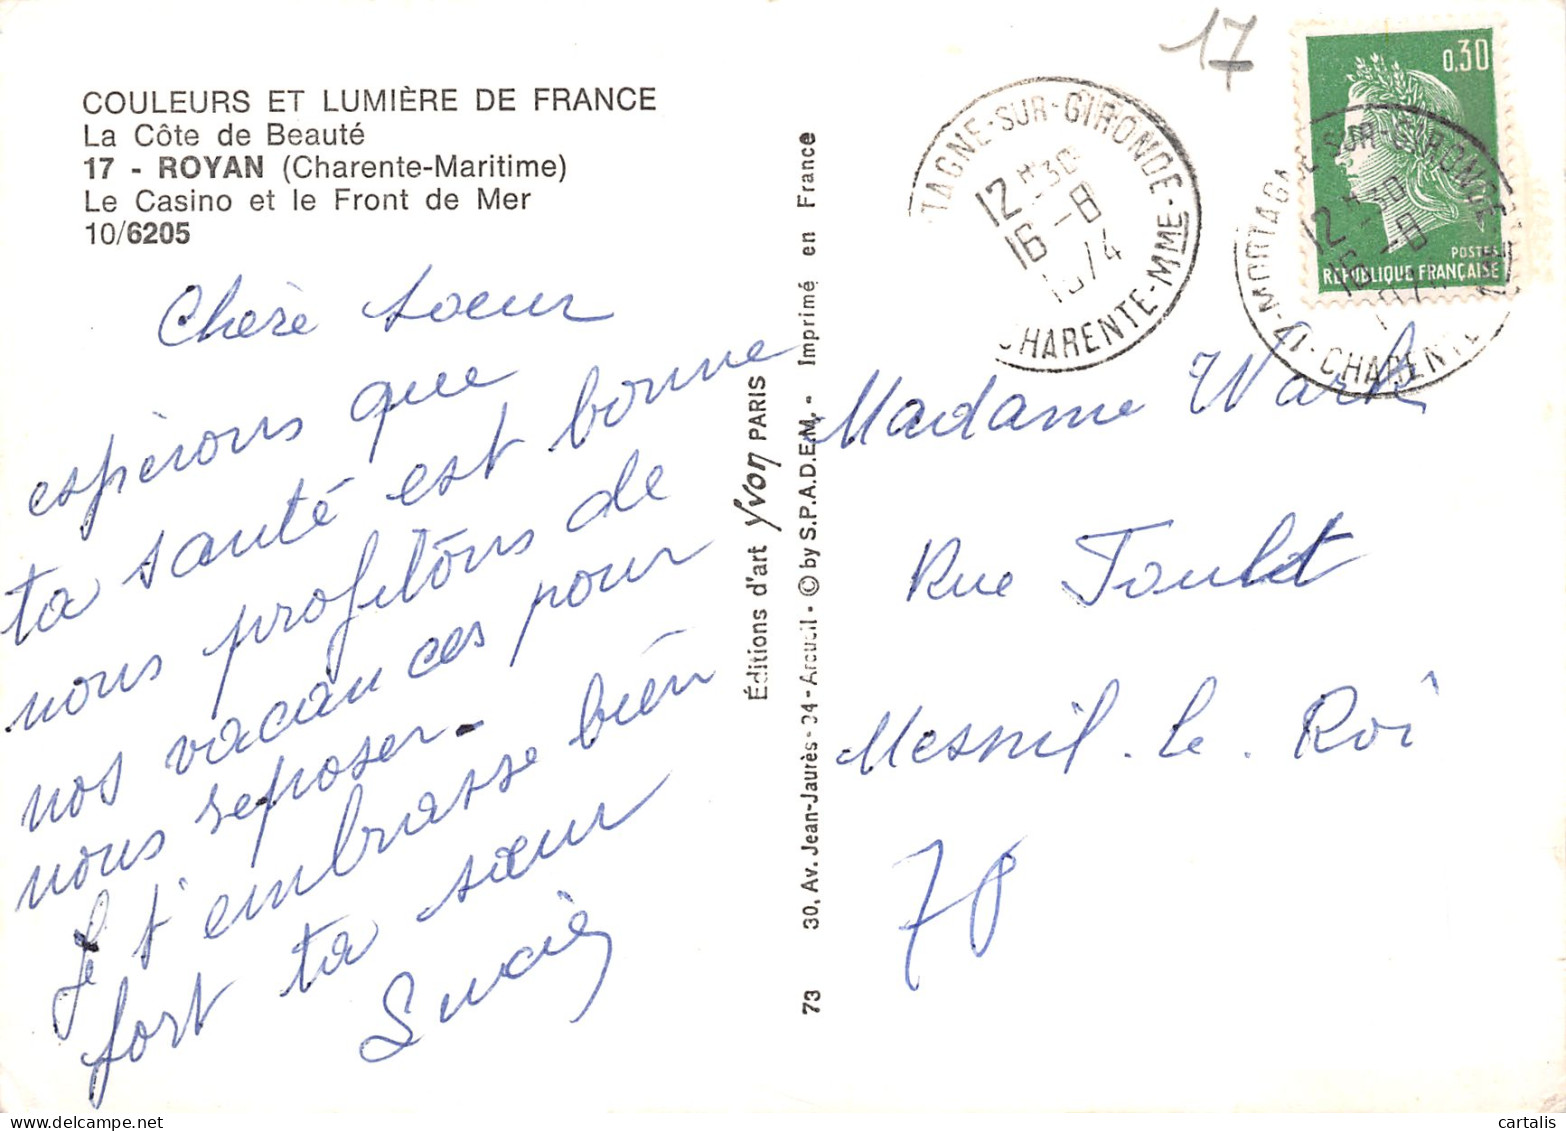 COULEURS ET LUMIÈRE DE FRANCE
La Côte de Beauté
17 - ROYAN (Charente-Maritime)
Le Casino et le Front de Mer
10/6205
Chère soeur
espèrons que
ta santé est bonne
nous profitons de
nos vacances pour
nous reposer -
Je t'embrasse bien
fort ta sœur
Lucie
Éditions d'art Yvon PARIS
73 30, Av. Jean-Jaurès - 94 - Arcueil - © by S.P.A.D.E.M. - Imprimé en France
17
TAGNE-SUR-GIRONDE
12 H 30
16 -8
1974
CHARENTE-MME
0,30
POSTES
RÉPUBLIQUE FRANÇAISE
17-MORTAGNE-SUR-GIRONDE
12 H 30
16 -8
CHARENTE
Madame Wark
Rue
Mesnil-le-Roi
78
cartalis